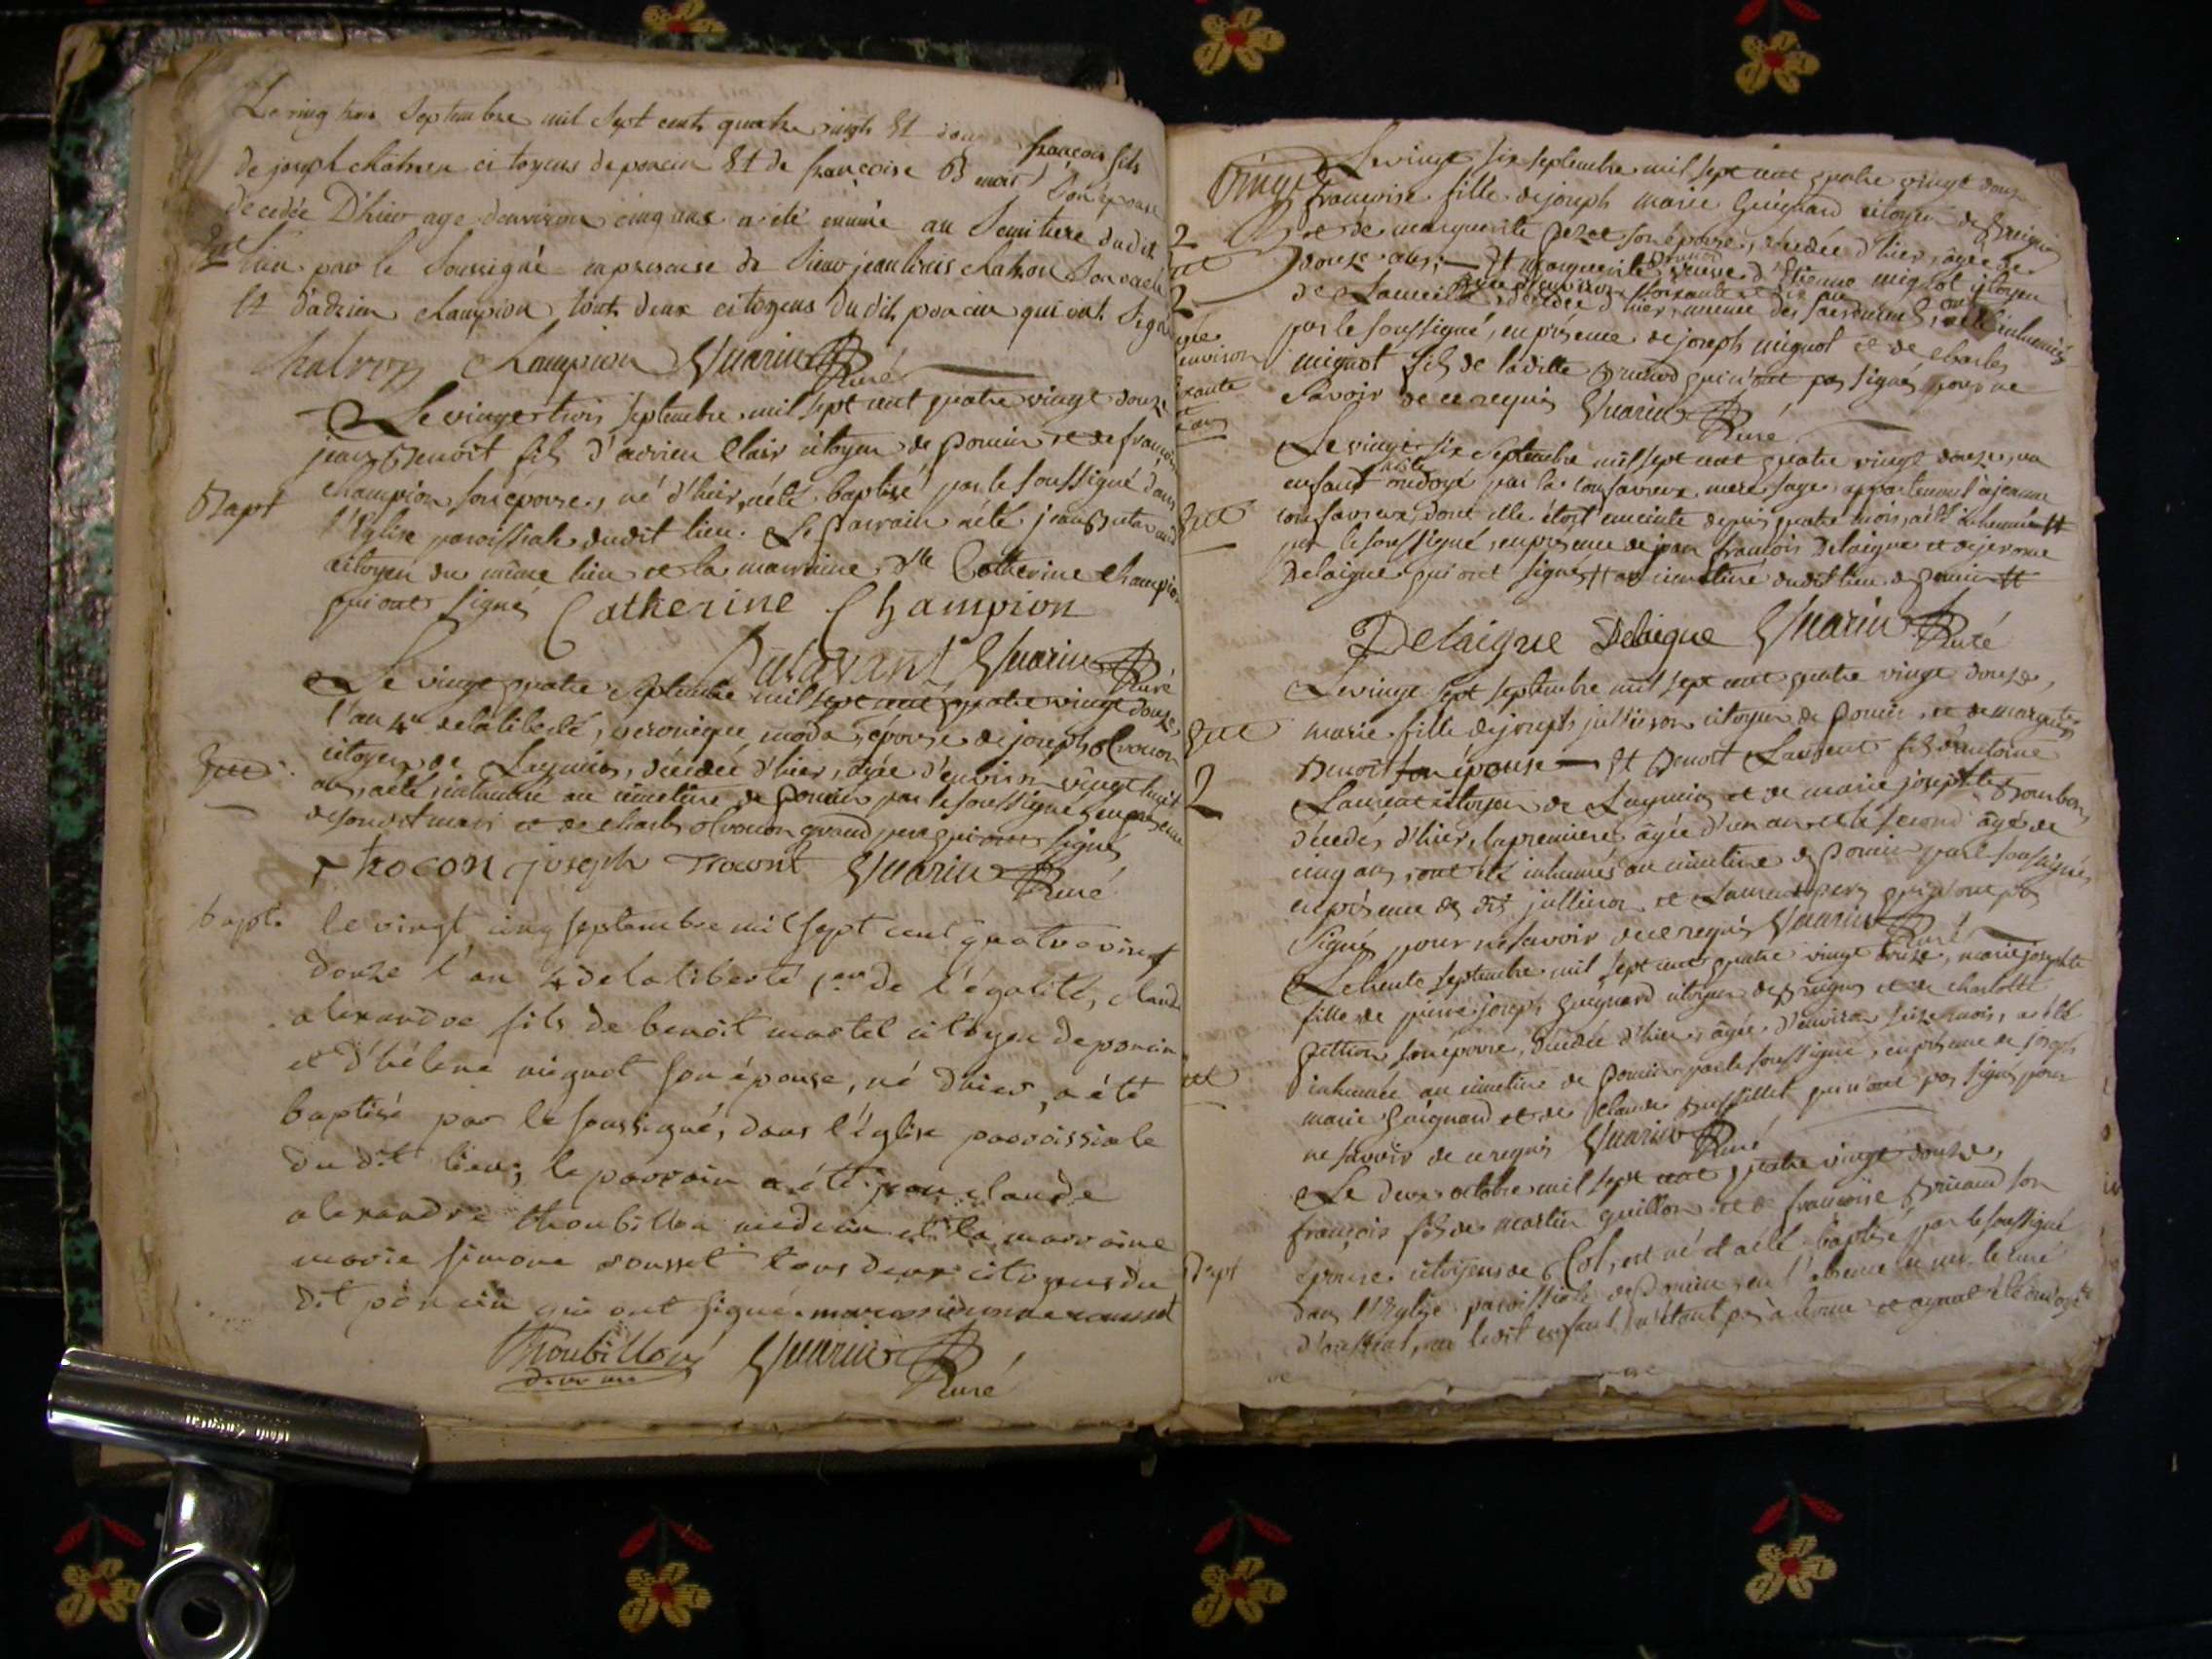 Le vingt trois Septembre mil Sept cents quatre vingts Et douze françois fils
de joseph chatron citoyens de poncin Et de françoise B enoit Son épouse
decedée D'hier age d'environ cinq ans a été inumé au Semitiere dudit
lieu par le Soussigné en presense de Sieur jean louis chatron Son oncle
Et d'adrien champion touts deux citoyens du dit poncin qui onts Signé
Chatron champion Guarin Curé
Le vingt trois septembre mil sept cent quatre vingt douze
jean Benoît fils d'adrien Clair citoyen de Poncin et de françoise
Bapt
champion son épouse, né d'hier, a été baptisé par le soussigné dans
l'Eglise paroissiale dudit lieu. Le Parrain a été jean Dutavand
citoyen du même lieu et la marraine dlle Catherine Champion
qui ont signés Catherine Champion
Dutavant Guarin Curé
Le vingt quatre septembre mil sept cent quatre vingt douze,
l'an 4e de la liberté, veronique épouse de joseph
citoyen de Leymiat, décédée d'hier, agée d'environ vingt huit
ans, a été inhumée au cimetière de Poncin par le soussigné, en présence
de sondit mari et de charles grand pere qui ont signés
trocon joseph Trocont Guarin Curé
bapt. le vingt cinq septembre mil sept cent quatre vingt
douze l'an 4 de la liberté 1er de l'égalité, claude
alexandre fils de benoit martel citoyen de poncin
et d'hélene mignot son épouse, né d'hier, a été
baptisé par le soussigné, dans l'église paroissiale
du dit lieu; le parrain a été jean claude
alexandre thoubillon médecin et la marraine
marie simone rousset tous deux citoyens du
dit poncin qui ont signé. marie simone rousset
Thoubillon Guarin Curé
Le vingt six septembre mil sept cent quatre vingt douze
françoise fille de joseph marie Guignard citoyen de
et de marguerite son épouse, décédée d'hier, agée de
2
douze ans; Et Marguerite Brunod veuve d'Etienne mignot citoyen
agée d'environ soixante et dix ans
de décédée d'hier, munie des sacrements, ont été inhumés
par le soussigné, en présence de joseph mignot et de charles
mignot fils de laditte Brunod qui n'ont pas signés pour ne
savoir de ce requis Guarin Curé
Le vingt six septembre mil sept cent quatre vingt douze, un
enfant mâle ondoyé par la consavreux mere sage appartenant à jeanne
consavreux, dont elle étoit enceinte depuis quatre mois, a été inhumé #
par le soussigné, en présence de jean françois Delaigue et de jerome
Delaigue qui ont signés # au cimetière dudit lieu de Poncin #
Delaigue Delaigue Guarin Curé
Le vingt sept septembre mil sept cent quatre vingt douze,
marie fille de joseph jullieron citoyen de Poncin, et de marguerite
Benoît son épouse Et Benoit Laurent fils d'antoine
2
Laurent citoyen de Leymiat et de marie josephte Bourbon,
décédés d'hier, la premiere âgée d'un an et le second âgé de
cinq ans, ont été inhumés au cimetière de Poncin par le soussigné,
en présence des dits jullieron et Laurent pere qui n'ont pas
signés pour ne savoir de ce requis Guarin Curé
Le trente septembre mil sept cent quatre vingt douze, marie josephte
fille de pierre joseph Guignard citoyen de et de charlotte
son épouse, décédée d'hier, âgée d'environ seize mois, a été
inhumée au cimetière de Poncin par le soussigné, en présence de joseph
marie Guignard et de claude qui n'ont pas signés pour
ne savoir de ce requis Guarin Curé
Le deux octobre mil sept cent quatre vingt douze,
françois fils de martin guillon et de françoise son
Bapt
épouse citoyens de Col, est né et a été baptisé par le soussigné
dans l'Eglise paroissiale de Poncin, en l'absence de mr. le curé
ledit enfant n'étant pas a terme et ayant été ondoyé